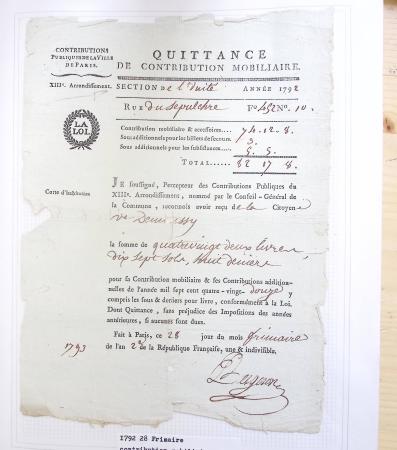 CONTRIBUTIONS
PUBLIQUES DE LA VILLE
DE PARIS.
XIIIe. Arrondissement.
LA
LOI.
Carte d'Institution
QUITTANCE
DE CONTRIBUTION MOBILIAIRE.
SECTION DE l'unité ANNÉE 1792
RUE du Sepulchre Fo. 452 No. 10.
Contribution mobiliaire & accessoires.... 74. 12. 8.
Sous additionnels pour les billets de secours. 3.
Sous additionnels pour les subsistances.... 5. 5.
TOTAL....... 82 17 8.
JE soussigné, Percepteur des Contributions Publiques du
XIIIe. Arrondissement, nommé par le Conseil-Général de
la Commune, reconnois avoir reçu de la Citoyenne
ve Denis
la somme de quatrevingt deux livres
dix sept sols, huit deniers
pour sa Contribution mobiliaire & ses Contributions addition-
nelles de l'année mil sept cent quatre-vingt-douze y
compris les sous & deniers pour livre, conformément à la Loi.
Dont Quittance, sans préjudice des Impositions des années
antérieures, si aucunes sont dues.
Fait à Paris, ce 28 jour du mois frimaire
1793 de l'an 2e de la République Française, une & indivisible.
1792 28 Frimaire